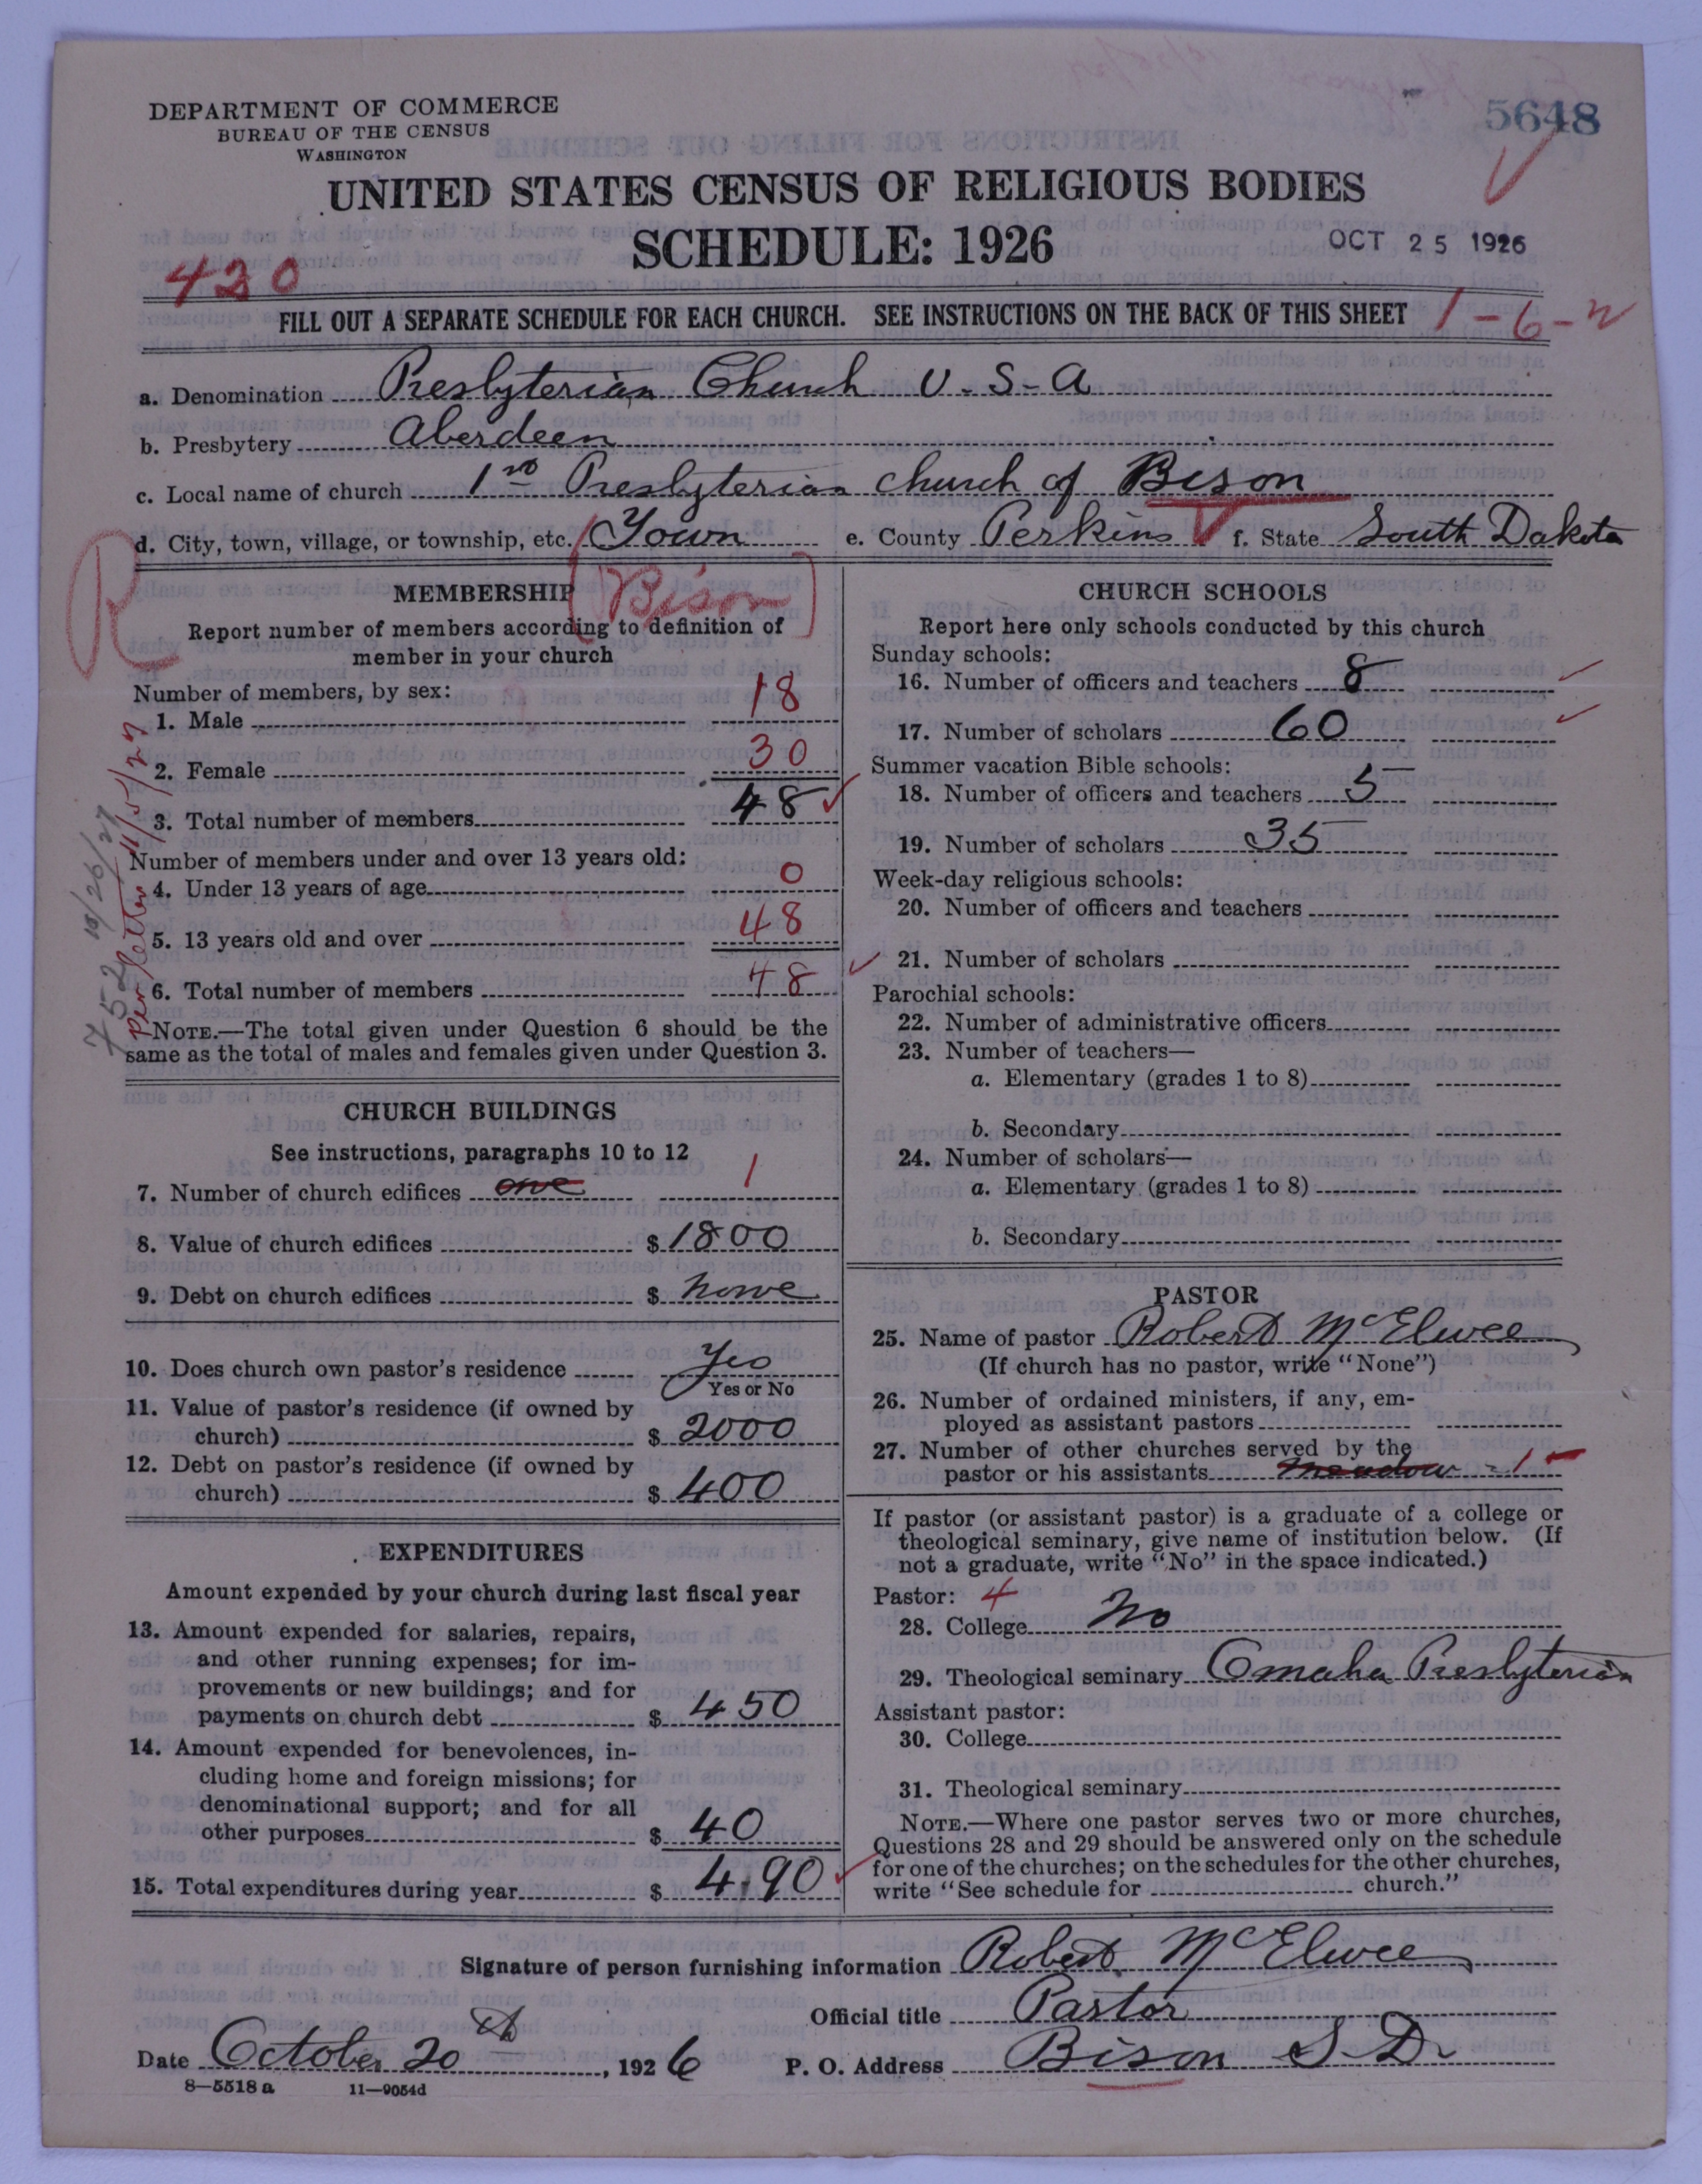 DEPARTMENT OF COMMERCE
BUREAU OF THE CENSUS
WASHINGTON
5648
UNITED STATES CENSUS OF RELIGIOUS BODIES
SCHEDULE: 1926
OCT 25 1926
420
FILL OUT A SEPARATE SCHEDULE FOR EACH CHURCH. SEE INSTRUCTIONS ON THE BACK OF THIS SHEET
1-6-2
a. Denomination Presbyterian Church U-S-A
b. Presbytery Aberdeen
c. Local name of church 1st Presbyterian church of Bison
d. City, town, village, or township, etc. Town e. County Perkins f. State South Dakota
R
(Bison)
MEMBERSHIP
Report number of members according to definition of
member in your church
Number of members, by sex:
1. Male 18
2. Female 30
3. Total number of members 48
Number of members under and over 13 years old:
4. Under 13 years of age 0
5. 13 years old and over 48
6. Total number of members 48
NOTE.—The total given under Question 6 should be the
same as the total of males and females given under Question 3.
Per letter 11/5/27
752 10/26/27
CHURCH BUILDINGS
See instructions, paragraphs 10 to 12
7. Number of church edifices one 1
8. Value of church edifices $ 1800
9. Debt on church edifices $ none
10. Does church own pastor's residence Yes
Yes or No
11. Value of pastor's residence (if owned by
church) $ 2000
12. Debt on pastor's residence (if owned by
church) $ 400
EXPENDITURES
Amount expended by your church during last fiscal year
13. Amount expended for salaries, repairs,
and other running expenses; for im-
provements or new buildings; and for
payments on church debt $ 450
14. Amount expended for benevolences, in-
cluding home and foreign missions; for
denominational support; and for all
other purposes $ 40
15. Total expenditures during year $ 490
CHURCH SCHOOLS
Report here only schools conducted by this church
Sunday schools:
16. Number of officers and teachers 8
17. Number of scholars 60
Summer vacation Bible schools:
18. Number of officers and teachers 5
19. Number of scholars 35
Week-day religious schools:
20. Number of officers and teachers
21. Number of scholars
Parochial schools:
22. Number of administrative officers
23. Number of teachers—
a. Elementary (grades 1 to 8)
b. Secondary
24. Number of scholars—
a. Elementary (grades 1 to 8)
b. Secondary
PASTOR
25. Name of pastor Robert McElwee
(If church has no pastor, write "None")
26. Number of ordained ministers, if any, em-
ployed as assistant pastors
27. Number of other churches served by the
pastor or his assistants Meadow - 1
If pastor (or assistant pastor) is a graduate of a college or
theological seminary, give name of institution below. (If
not a graduate, write "No" in the space indicated.)
Pastor: 4
28. College No
29. Theological seminary Omaha Presbyterian
Assistant pastor:
30. College
31. Theological seminary
NOTE.—Where one pastor serves two or more churches,
Questions 28 and 29 should be answered only on the schedule
for one of the churches; on the schedules for the other churches,
write "See schedule for church."
Signature of person furnishing information Robert McElwee
Official title Pastor
Date October 20th, 1926 P. O. Address Bison S.D.
8—5518a 11—9054d